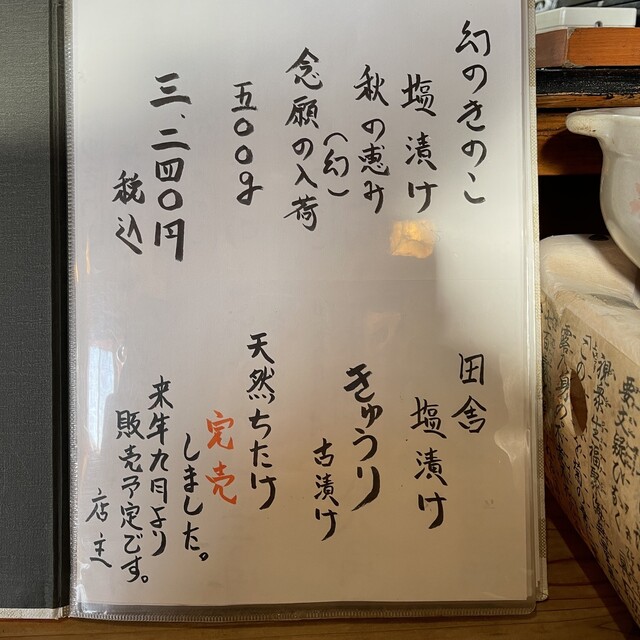 幻のきのこ
塩漬け
秋の恵み
(幻)
念願の入荷
五〇〇g
三、二四〇円
税込
田舎
塩漬け
きゅうり
古漬け
天然ちたけ
完売
しました。
来年九月より
販売予定です。
店主